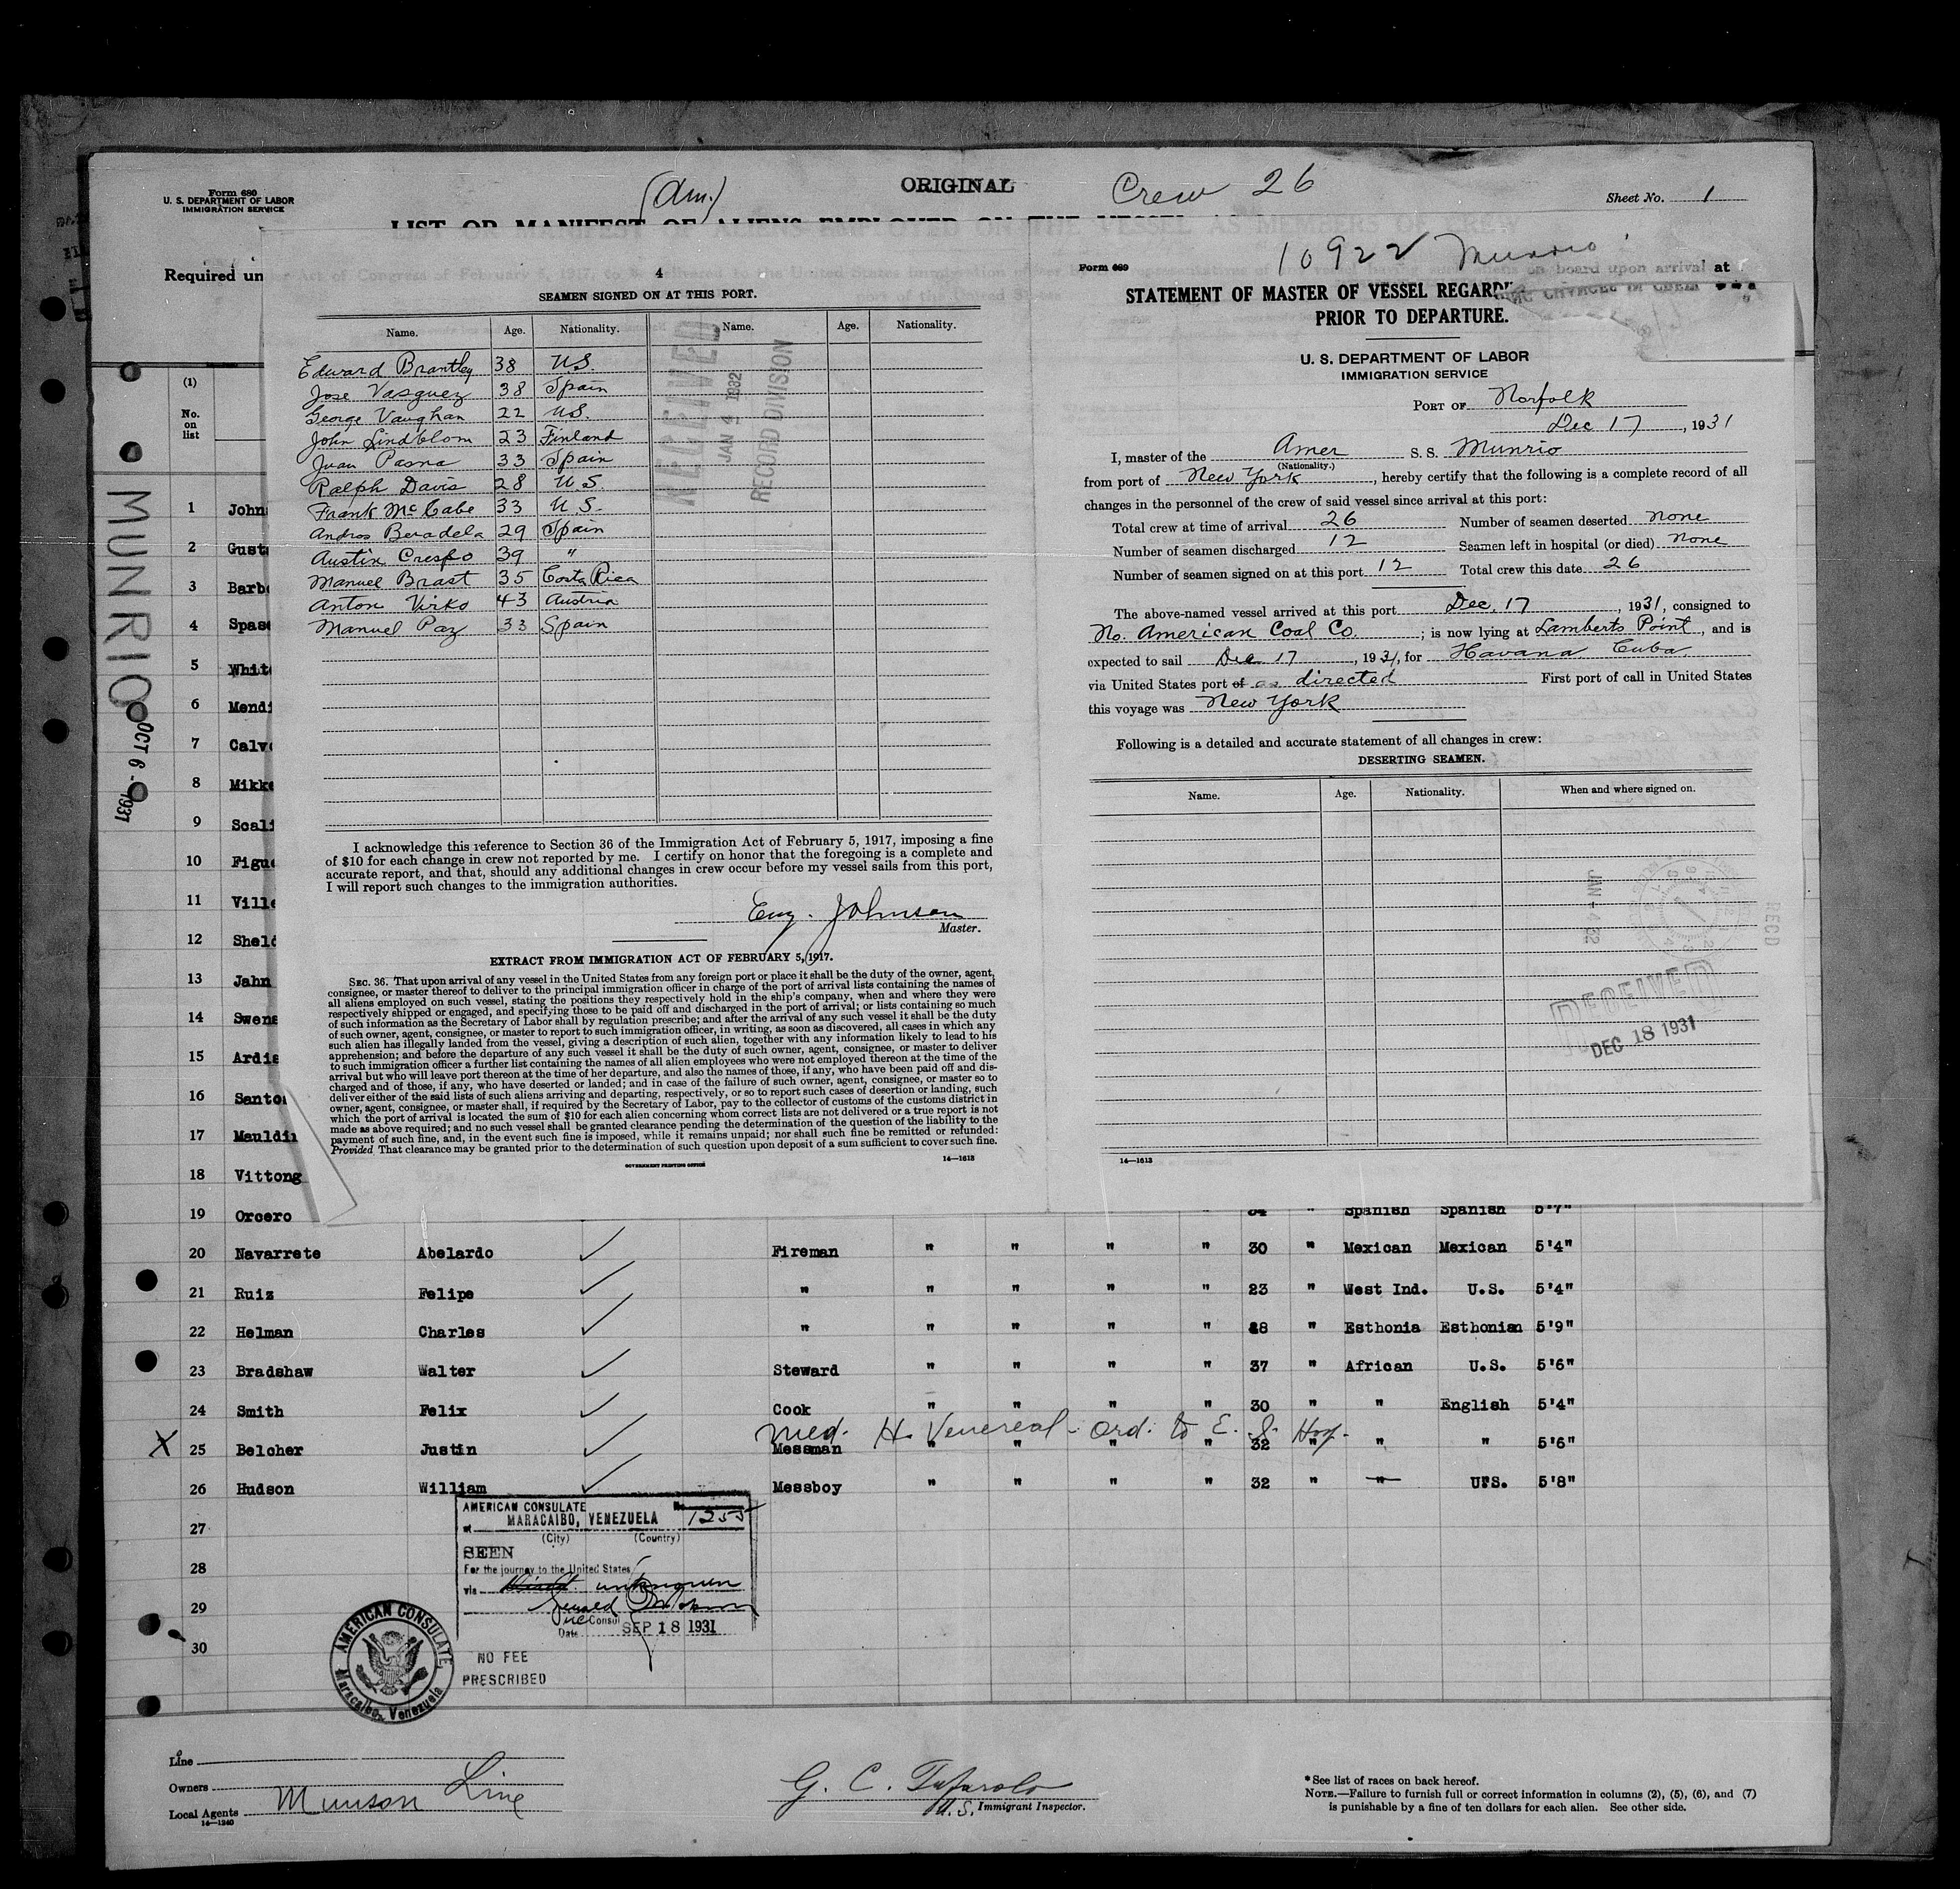 Form 680
U. S. DEPARTMENT OF LABOR
IMMIGRATION SERVICE
(Am.)
ORIGINAL
Crew 26
Sheet No. 1
LIST OR MANIFEST OF ALIENS EMPLOYED ON THE VESSEL AS MEMBERS OF CREW
Required un
on board upon arrival at
(1)
No. on list
MUNRIO
OCT 6 - 1931
1 John
2 Gust
3 Barb
4 Spas
5 White
6 Mendi
7 Calv
8 Mikk
9 Scali
10 Figu
11 Ville
12 Sheld
13 Jahn
14 Swens
15 Ardis
16 Santo
17 Mauldi
18 Vittong
19 Orcero 34 " Spanish Spanish 5'7"
20 Navarrete Abelardo Fireman " " " " 30 " Mexican Mexican 5'4"
21 Ruiz Felipe " " " " " 23 " West Ind. U.S. 5'4"
22 Helman Charles " " " " " 28 " Esthonia Esthonian 5'9"
23 Bradshaw Walter Steward " " " " 37 " African U.S. 5'6"
24 Smith Felix Cook " " " " 30 " " English 5'4"
med. H. Venereal - ord. to E. I. Hosp.
X 25 Belcher Justin Messman " " " " 32 " " " 5'6"
26 Hudson William Messboy " " " " 32 " " U.S. 5'8"
27
28
29
30
AMERICAN CONSULATE No 1255
at MARACAIBO, VENEZUELA
(City) (Country)
SEEN
For the journey to the United States
via unknown
Consul
Date SEP 18 1931
NO FEE
PRESCRIBED
AMERICAN CONSULATE
Maracaibo, Venezuela
Line
Owners
Local Agents Munson Line
14—1240
G. C.
U. S. Immigrant Inspector.
*See list of races on back hereof.
NOTE.—Failure to furnish full or correct information in columns (2), (5), (6), and (7)
is punishable by a fine of ten dollars for each alien. See other side.
4
SEAMEN SIGNED ON AT THIS PORT.
Name. Age. Nationality. Name. Age. Nationality.
Edward Brantley 38 U.S.
Jose Vasquez 38 Spain
George Vaughan 22 U.S.
John Lindblom 23 Finland
Juan Pasna 33 Spain
Ralph Davis 28 U.S.
Frank McCabe 33 U.S.
Andros Beradela 29 Spain
Austin Crespo 39 "
Manuel Brast 35 Costa Rica
Anton Virko 43 Austria
Manuel Paz 33 Spain
RECEIVED
JAN 4 1932
RECORD DIVISION
I acknowledge this reference to Section 36 of the Immigration Act of February 5, 1917, imposing a fine
of $10 for each change in crew not reported by me. I certify on honor that the foregoing is a complete and
accurate report, and that, should any additional changes in crew occur before my vessel sails from this port,
I will report such changes to the immigration authorities.
Eug. Johnson
Master.
EXTRACT FROM IMMIGRATION ACT OF FEBRUARY 5, 1917.
SEC. 36. That upon arrival of any vessel in the United States from any foreign port or place it shall be the duty of the owner, agent,
consignee, or master thereof to deliver to the principal immigration officer in charge of the port of arrival lists containing the names of
all aliens employed on such vessel, stating the positions they respectively hold in the ship's company, when and where they were
respectively shipped or engaged, and specifying those to be paid off and discharged in the port of arrival; or lists containing so much
of such information as the Secretary of Labor shall by regulation prescribe; and after the arrival of any such vessel it shall be the duty
of such owner, agent, consignee, or master to report to such immigration officer, in writing, as soon as discovered, all cases in which any
such alien has illegally landed from the vessel, giving a description of such alien, together with any information likely to lead to his
apprehension; and before the departure of any such vessel it shall be the duty of such owner, agent, consignee, or master to deliver
to such immigration officer a further list containing the names of all alien employees who were not employed thereon at the time of the
arrival but who will leave port thereon at the time of her departure, and also the names of those, if any, who have been paid off and dis-
charged and of those, if any, who have deserted or landed; and in case of the failure of such owner, agent, consignee, or master so to
deliver either of the said lists of such aliens arriving and departing, respectively, or so to report such cases of desertion or landing, such
owner, agent, consignee, or master shall, if required by the Secretary of Labor, pay to the collector of customs of the customs district in
which the port of arrival is located the sum of $10 for each alien concerning whom correct lists are not delivered or a true report is not
made as above required; and no such vessel shall be granted clearance pending the determination of the question of the liability to the
payment of such fine, and, in the event such fine is imposed, while it remains unpaid; nor shall such fine be remitted or refunded:
Provided That clearance may be granted prior to the determination of such question upon deposit of a sum sufficient to cover such fine.
GOVERNMENT PRINTING OFFICE
14—1613
Form 689
10922 Munrio
STATEMENT OF MASTER OF VESSEL REGARDING CHANGES IN CREW
PRIOR TO DEPARTURE.
U. S. DEPARTMENT OF LABOR
IMMIGRATION SERVICE
PORT OF Norfolk
Dec 17, 1931
I, master of the Amer S. S. Munrio
(Nationality.)
from port of New York, hereby certify that the following is a complete record of all
changes in the personnel of the crew of said vessel since arrival at this port:
Total crew at time of arrival 26 Number of seamen deserted none
Number of seamen discharged 12 Seamen left in hospital (or died) none
Number of seamen signed on at this port 12 Total crew this date 26
The above-named vessel arrived at this port Dec. 17, 1931, consigned to
No. American Coal Co.; is now lying at Lamberts Point, and is
expected to sail Dec 17, 1931, for Havana Cuba.
via United States port of as directed First port of call in United States
this voyage was New York
Following is a detailed and accurate statement of all changes in crew:
DESERTING SEAMEN.
Name. Age. Nationality. When and where signed on.
JAN - 4 32
RECD
RECEIVED
DEC 18 1931
14—1613